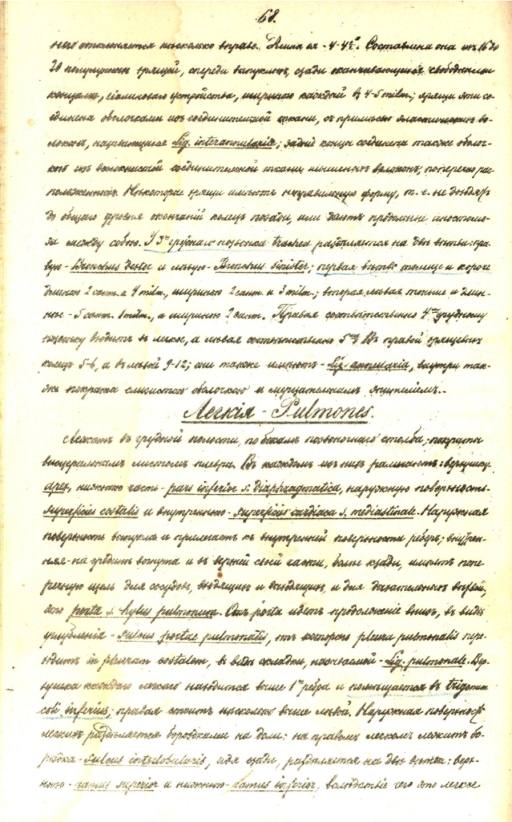 68.
него отклоняется несколько вправо. Длина ея - 4-4½". Составлена она изъ 16 до
20 полулунныхъ хрящей, спереди выпуклыхъ, сзади оканчивающихся свободными
концами, гіалиноваго устройства, шириною каждый въ 4-5 milm.; хрящи эти со
единена оболочками изъ соединительной ткани, съ примѣсью эластическихъ во
локонъ, называющихся Lig. interannularia; задніе концы соединены также оболоч
кою изъ волокнистой соединительной ткани, мышечныхъ волоконъ, поперечно рас
положенныхъ. Нѣкоторые хрящи имѣютъ неправильную форму, т. е. не доходятъ
до общаго уровня окончаній колецъ позади, или даютъ продольные анастомо
зы между собою. У 3го груднаго позвонка trachea раздѣляется на двѣ вѣтви: пра
вую - Bronchus dexter и лѣвую - Bronchus sinister; первая вѣтвь толще и короче
длиною 2 сант. и 4 milm., шириною 2 сант. и 3 milm.; вторая, лѣвая тоньше и длин
нѣе - 5 сант. milm., а шириною 2 сант. Правая соотвѣтственно 4му грудному
позвонку входитъ въ легкое, а лѣвая соотвѣтственно 5му. Въ правой хрящевыхъ
колецъ 5-6, а въ лѣвой 9-12; они также имѣютъ - Lig. annularia, внутри так
же покрыта слизистою оболочкою и мерцательнымъ эпителіемъ.
Легкія - Pulmones.
Лежатъ въ грудной полости, по бокамъ позвоночнаго столба; покрыты
висцеральнымъ листомъ плевры. Въ каждомъ изъ нихъ различаютъ: верхушку
apex, нижнюю часть - pars inferior s. diaphragmatica, наружную поверхность
superficies costalis и внутреннюю - superficies cardiaca s. mediastinale. Наружная
поверхность выпукла и прилегаетъ къ внутренней поверхности реберъ; внутрен
няя - на срединѣ вогнута и въ верхней своей части, болѣе кзади, имѣетъ попе
речную щель для сосудовъ, входящихъ и выходящихъ, и для дыхательныхъ вѣтвей,
это porta s. hylus pulmonum. Отъ porta идетъ продолженіе внизъ, въ видѣ
углубленія - sulcus portae pulmonalis, отъ котораго pleura pulmonalis пере
ходитъ in pleuram costalem, въ видѣ складки, называемой - Lig. pulmonale. Вер
хушка каждаго легкаго находится выше 1го ребра и помѣщается въ trigonum
colli inferius; правая стоитъ нѣсколько выше лѣвой. Наружная поверхность
легкихъ раздѣляется бороздками на доли: на правомъ легкомъ лежитъ бо
роздка - sulcus interlobularis, идя сзади, раздѣляется на двѣ вѣтви: верх
нюю - ramus superior и нижнюю - ramus inferior, вслѣдствіе чего это легкое